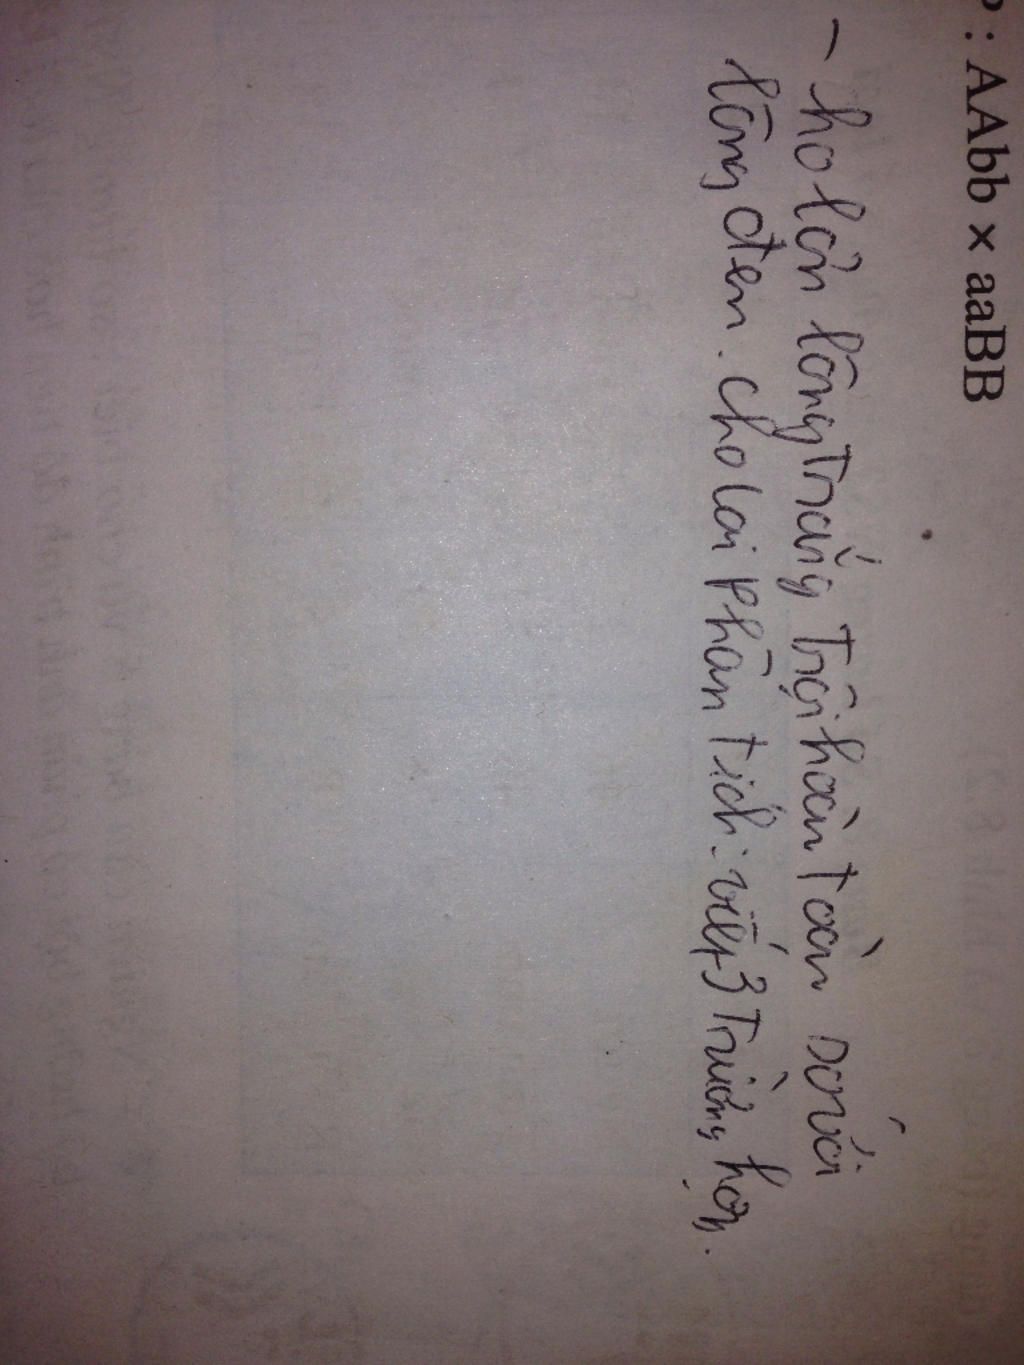 P : AAbb × aaBB
– ho lợn lông trắng trội hoàn toàn so với
lông đen. cho lai phân tích: viết 3 trường hợp.